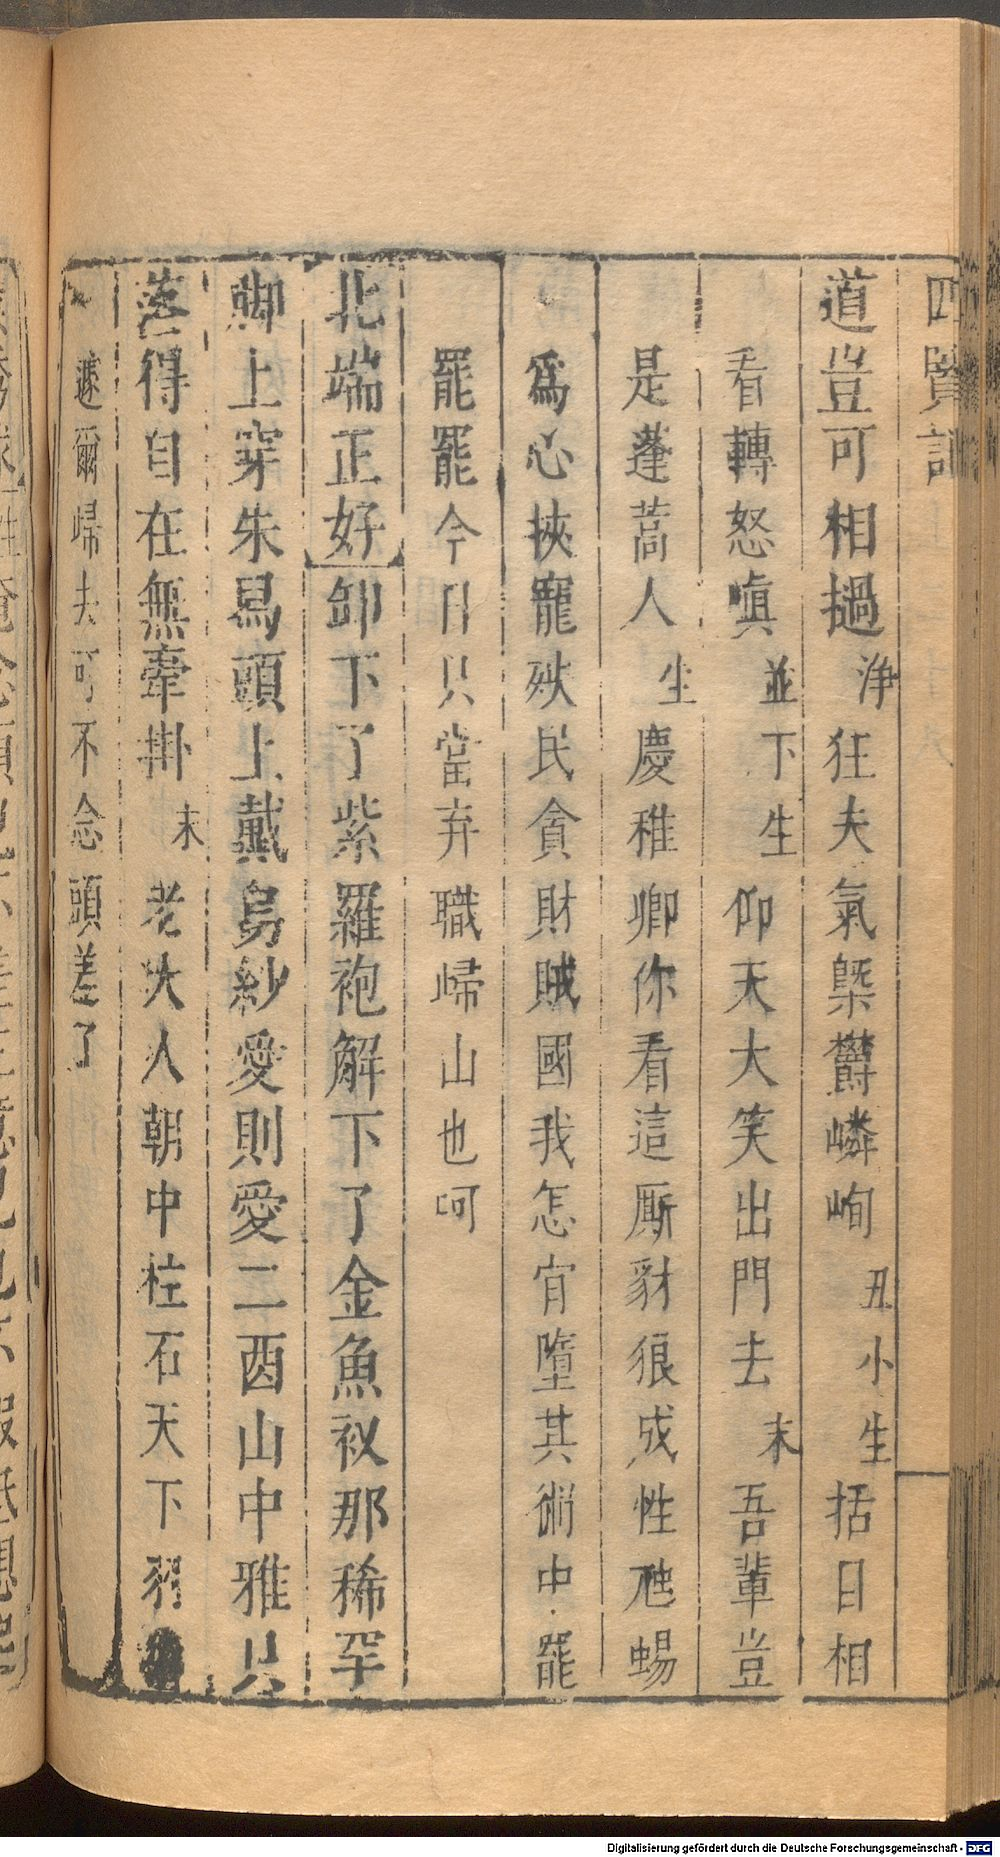 四賢記
道豈可相撾淨狂夫氣槩欝嶙峋丑小生括日相
看轉怒嗔並下生仰天大笑出門去末吾輩豈
是蓬蒿人生慶稚卿你看這厮豺狼成性虺蜴
為心挾寵殃民貪財賊國我怎肯墮其術中罷
罷罷今日只當弃職歸山也呵
北端正好卸下了紫羅袍解下了金魚衩那稀罕
脚上穿朱舄頭上戴烏紗愛則愛二酉山中雅只
落得自在無牽掛末老大人朝中柱石天下
遽爾歸去可不念頭差了
Digitalisierung gefördert durch die Deutsche Forschungsgemeinschaft - DFG